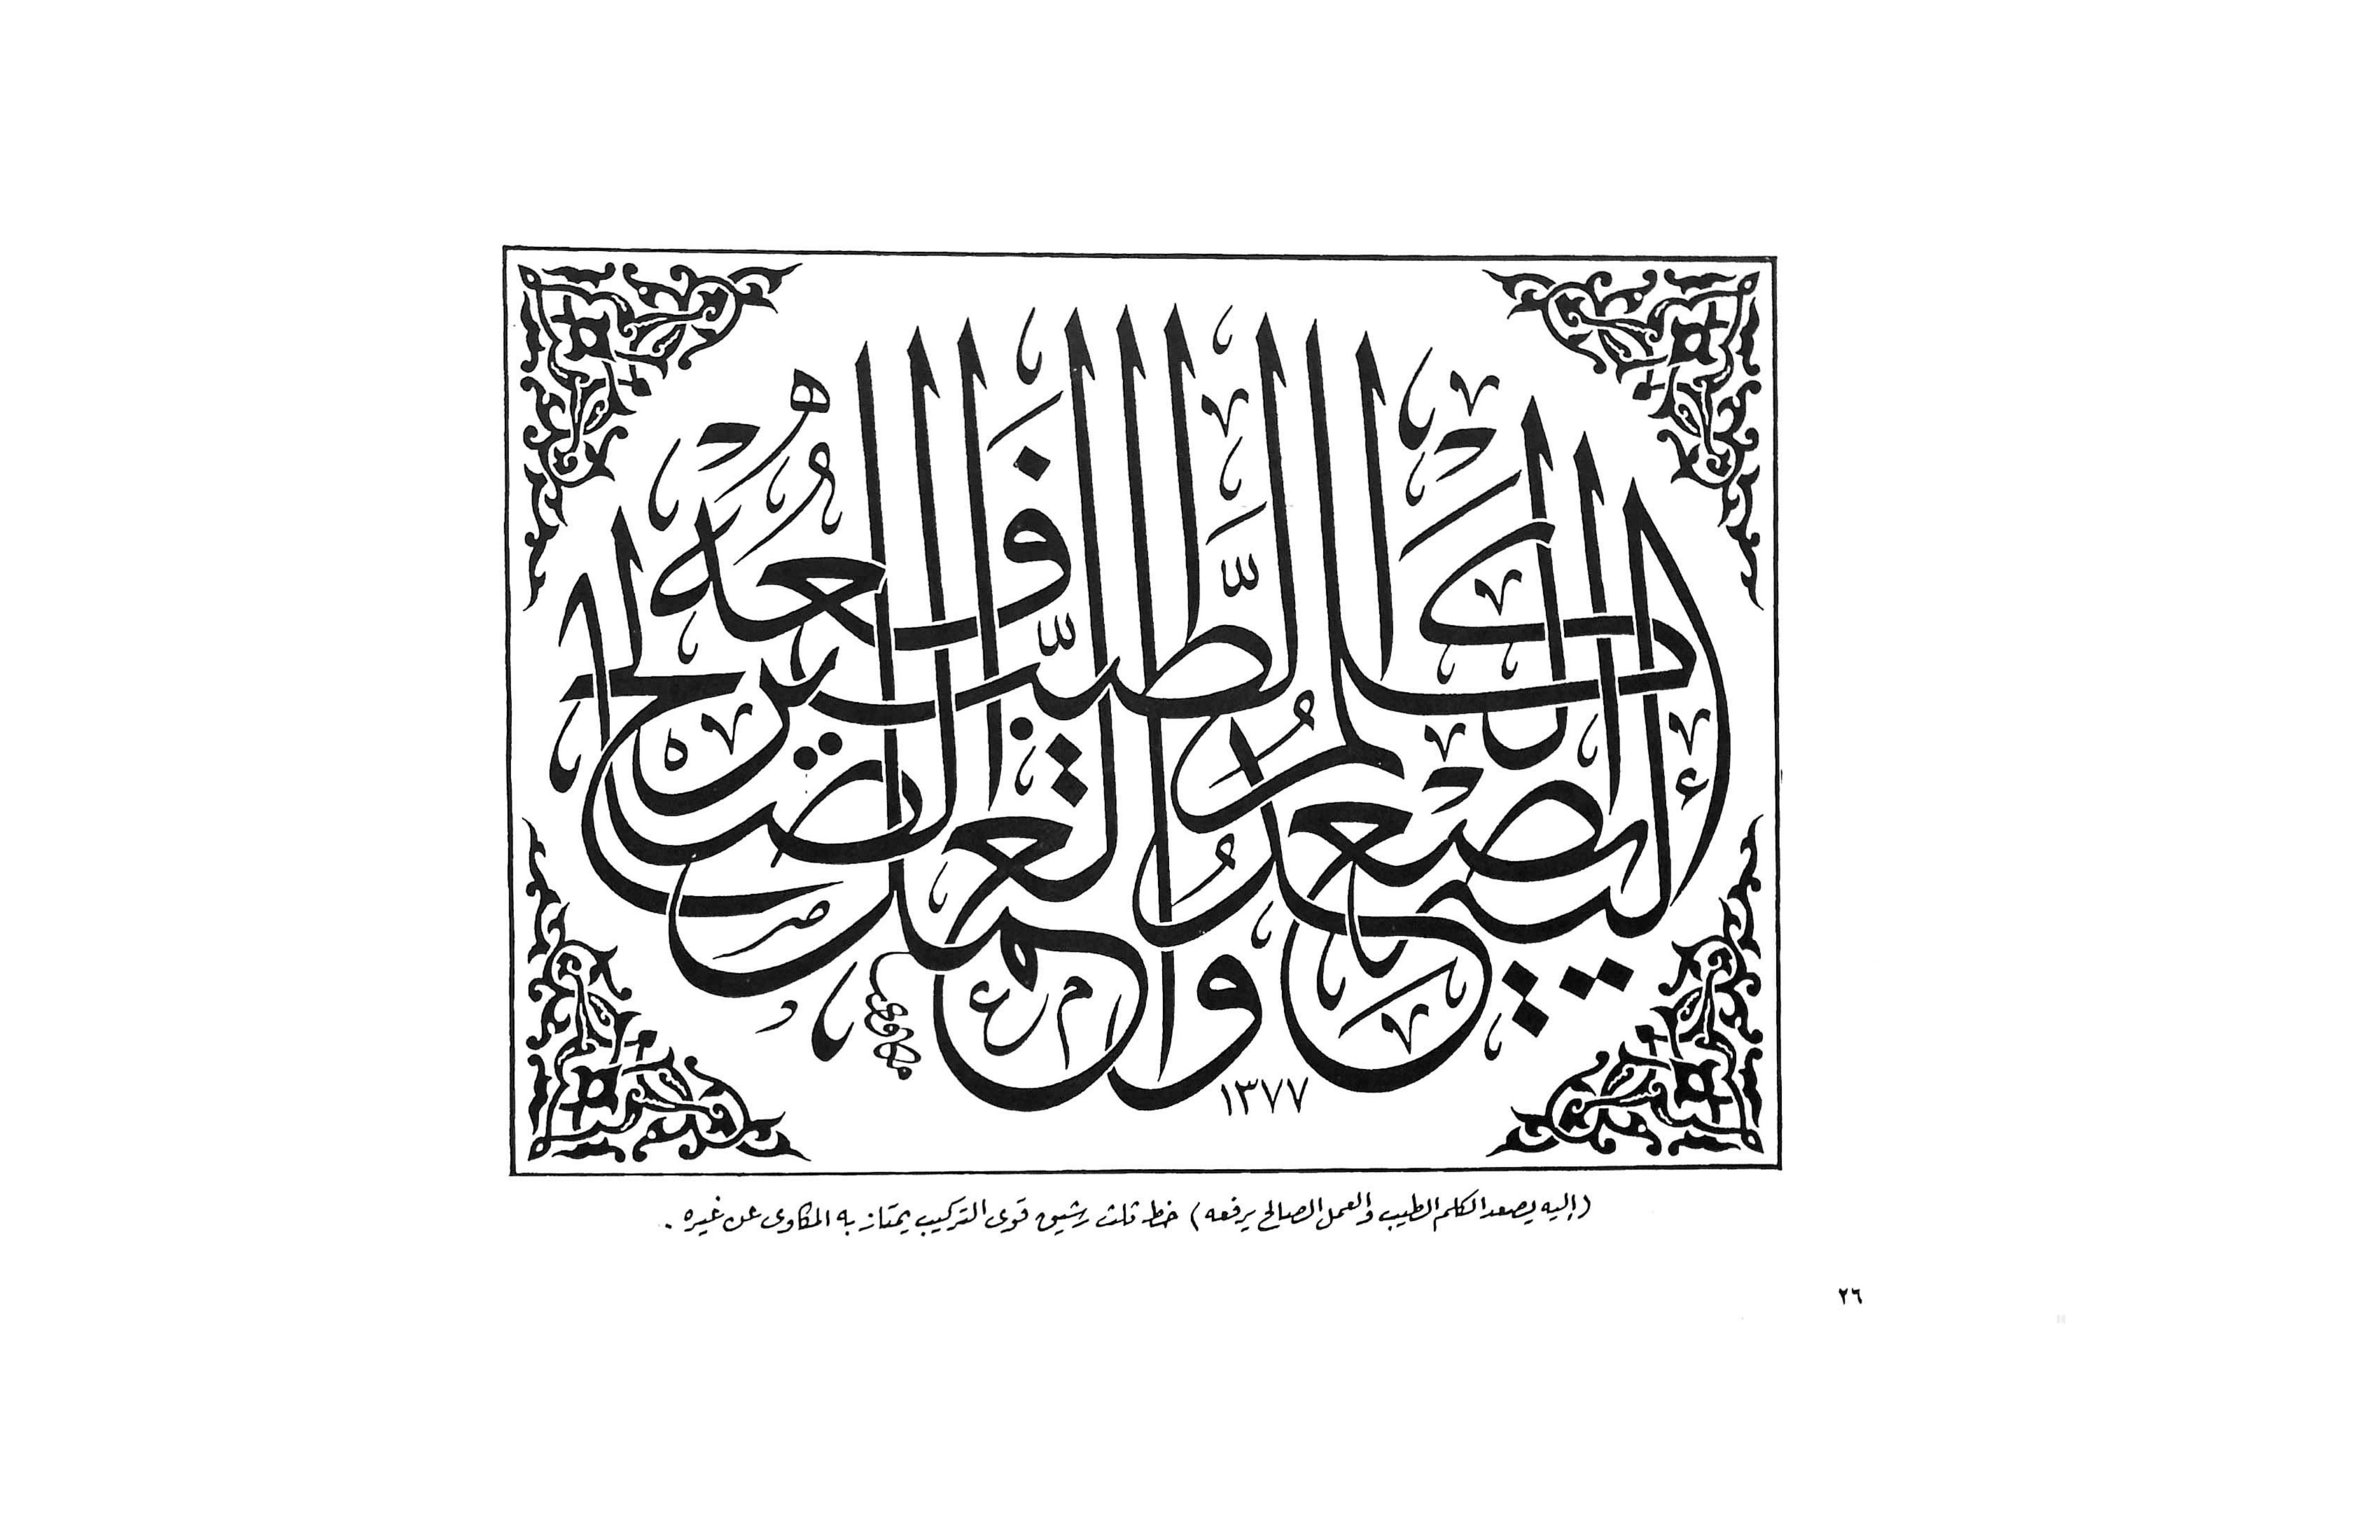 إليه يصعد الكلم الطيب والعمل الصالح يرفعه
١٣٧٧
(إليه يصعد الكلم الطيب والعمل الصالح يرفعه) خط ثلث رشيق قوى التركيب يمتاز به المكاوى عن غيره .
٢٦